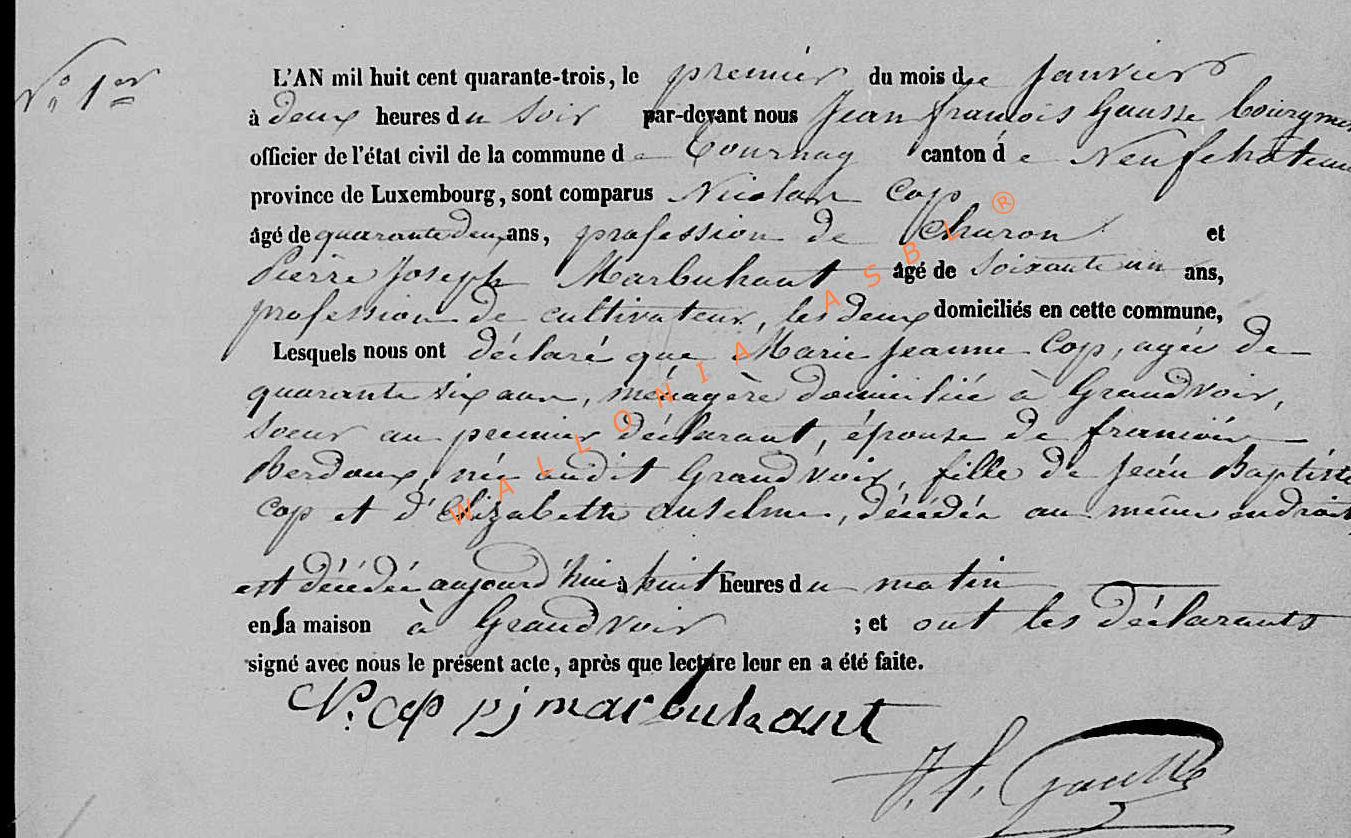 N° 1er
L'AN mil huit cent quarante-trois, le premier du mois de Janvier
à deux heures du Soir par-devant nous Jean françois Gausse Bourgme
officier de l'état civil de la commune de Tournay canton de Neufchateau
province de Luxembourg, sont comparus Nicolas Cop
âgé de quarante deux ans, profession de Charon et
Pierre Joseph Marbuhant âgé de Soixante un ans,
profession de cultivateur, les deux domiciliés en cette commune,
Lesquels nous ont déclaré que Marie Jeanne Cop, agée de
quarante six ans, ménagère domiciliée à Grandvoir,
Soeur au premier déclarant, épouse de francois
Berdoux, née audit Grandvoir, fille de Jean Baptiste
Cop et d'Elizabeth anselme, décédée au même endroit
est décédée aujourd'hui à huit heures du matin
en sa maison à Grandvoir ; et ont les déclarants
signé avec nous le présent acte, après que lecture leur en a été faite.
N. Cop pj marbuhant
J. f. Gausse
WALLONIA ASBL ®